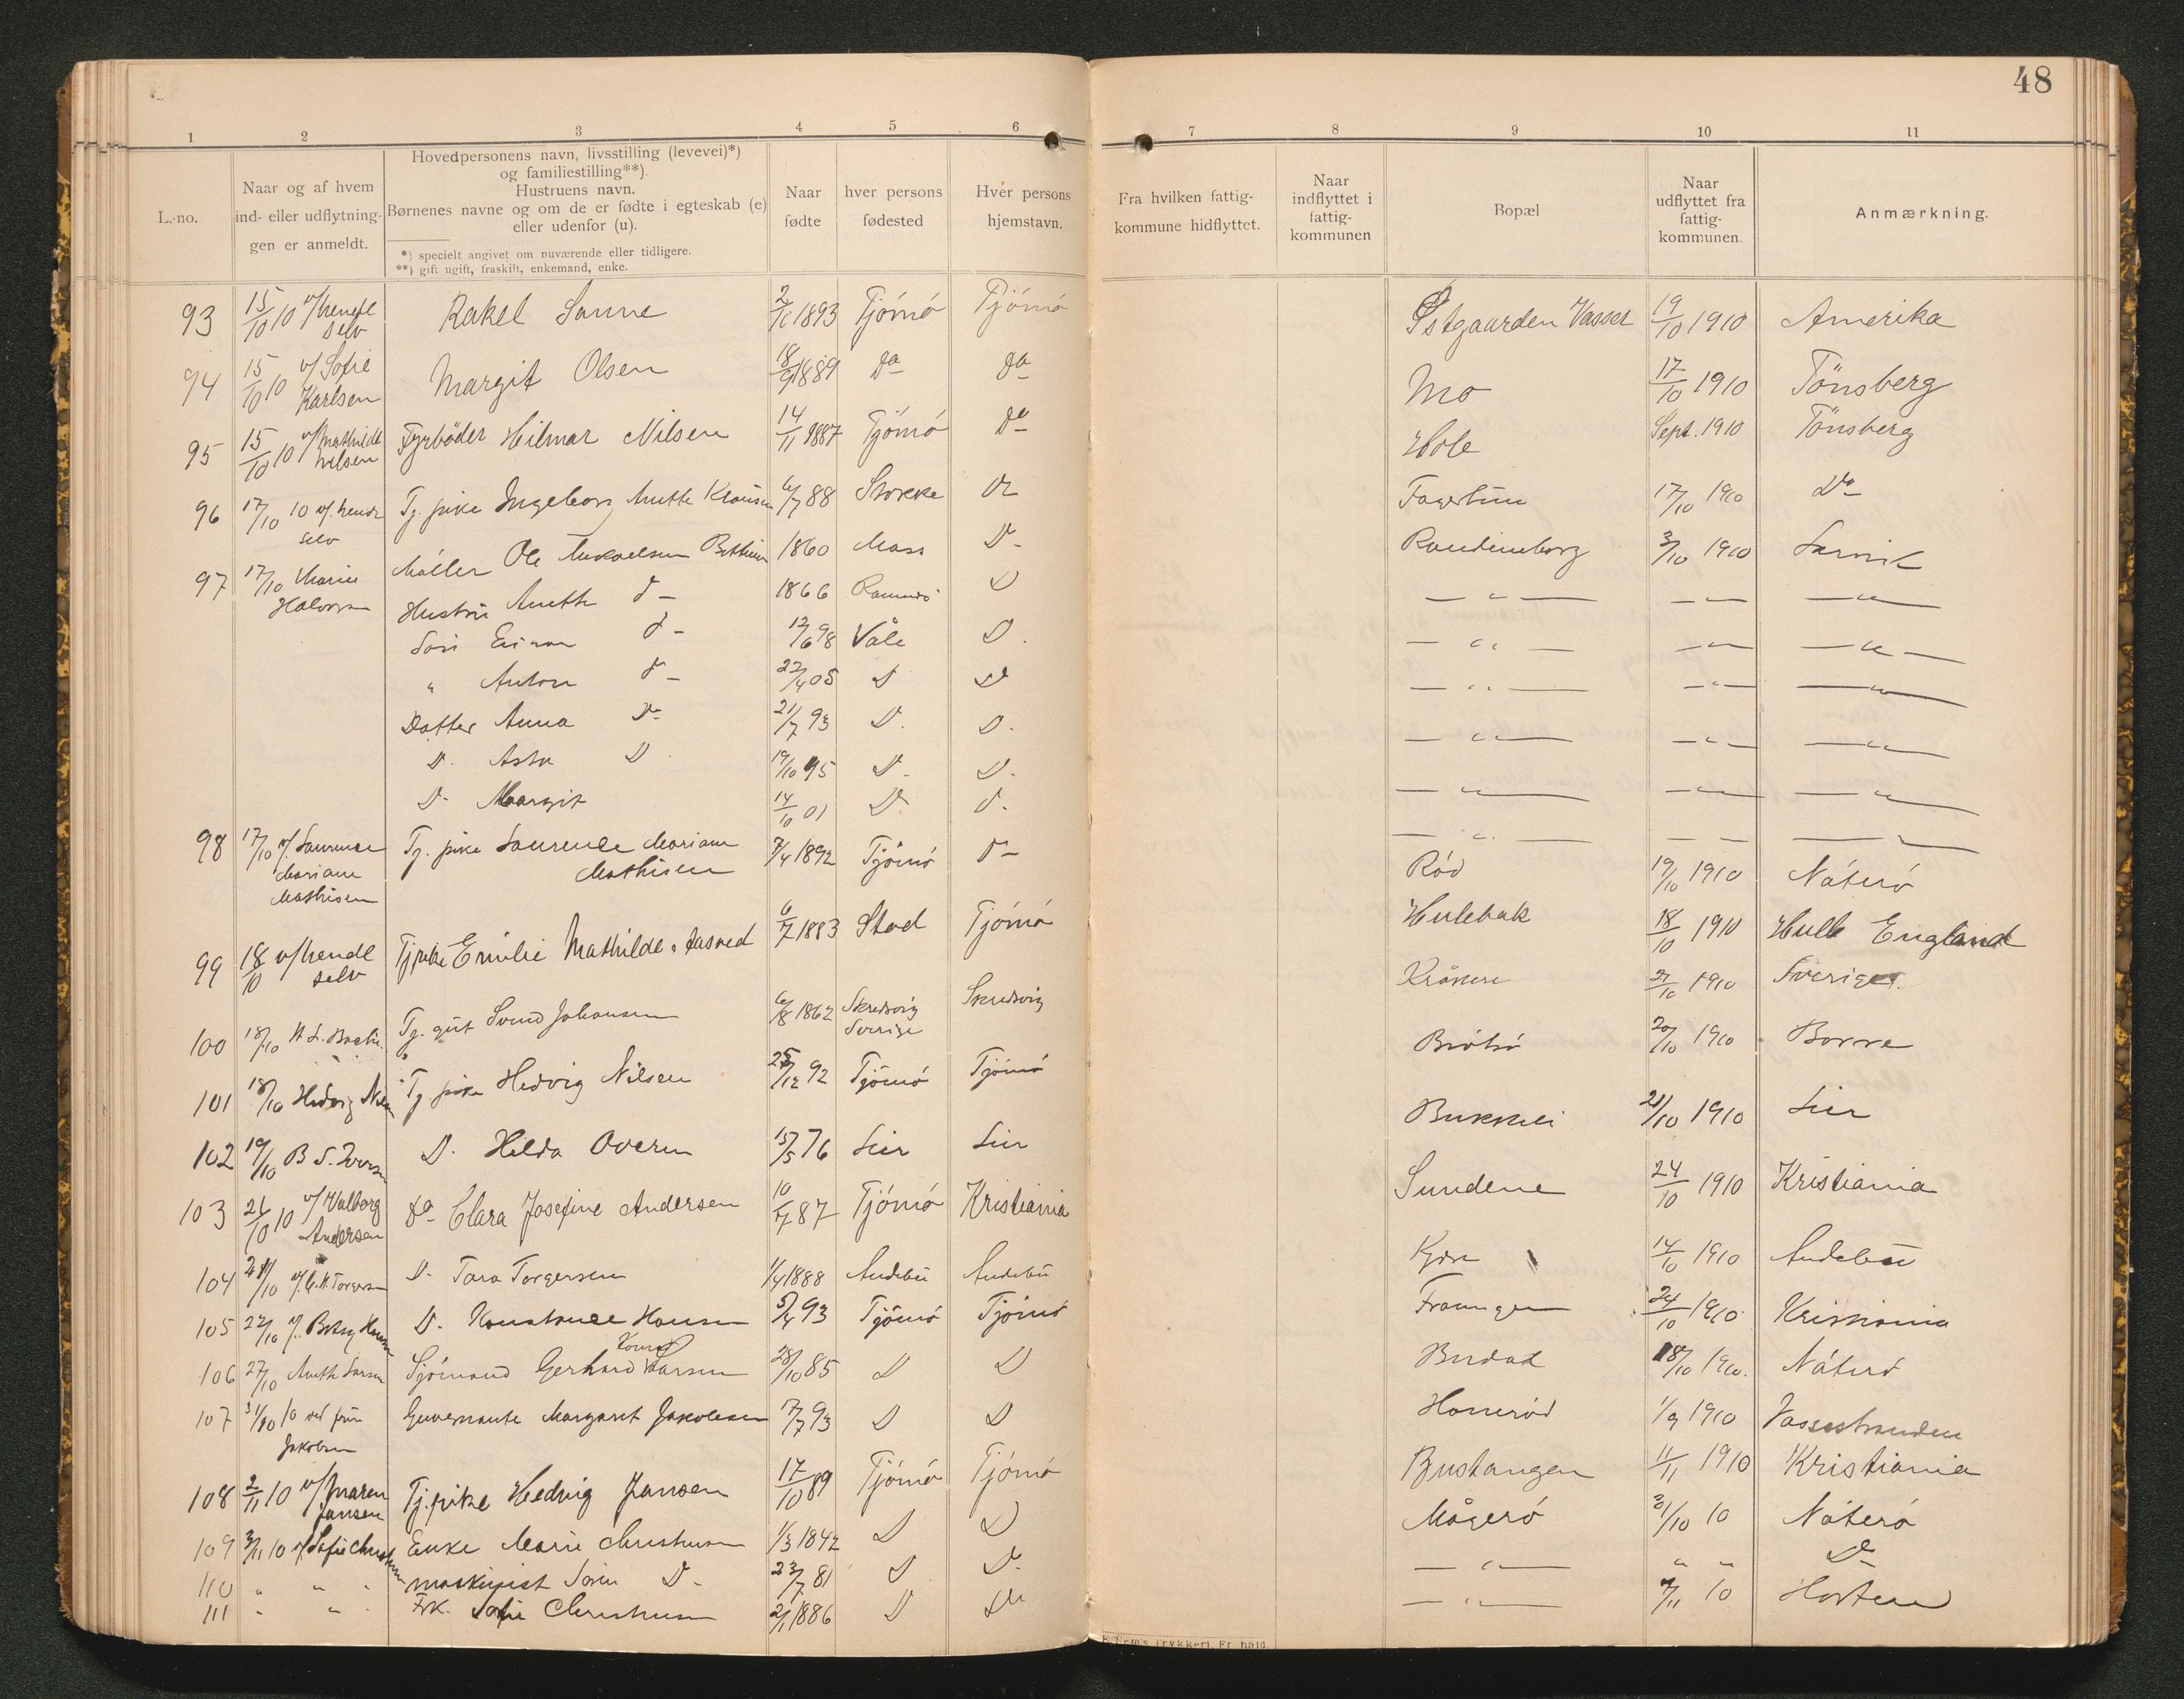 48
1 2 3 4 5 6 7 8 9 10 11
L.-no.
Naar og af hvem
ind- eller udflytnin-
gen er anmeldt.
Hovedpersonens navn, livsstilling (levevei)*)
og familiestilling**)
Hustruens navn.
Børnenes navne og om de er fødte i egteskab (e)
eller udenfor (u).
*) specielt angivet om nuværende eller tidligere.
**) gift ugift, fraskilt, enkemand, enke.
Naar
fødte
hver persons
fødested
Hver persons
hjemstavn.
Fra hvilken fattig-
kommune hidflyttet.
Naar
indflyttet i
fattig-
kommunen
Bopæl
Naar
udflyttet fra
fattig-
kommunen.
Anmærkning.
93 15/10 10 v/ hende selv Rakel Sanne 2/6 1893 Tjömö Tjömö Østgaarden Vasser 19/10 1910 Amerika
94 15/10 10 v/ Sofie Karlsen Margit Olsen 18/9 1889 Do Do Mo 17/10 1910 Tönsberg
95 15/10 10 v/ Mathilde Nilsen Fyrböder Hilmar Nilsen 14/11 1887 Tjömö Do Hole Sept. 1910 Tönsberg
96 17/10 10 v/ hende selv Tj. pike Ingeborg Anette Klausen 6/7 88 Stokke Do Fagertun 17/10 1910 Do
97 17/10 Marie Halvorsen Möller Ole 1860 Moss D - 3/10 1910 Larvik
Hustru Anette d - 1866 Ramnes D — " — — " — — " —
Sön Einar d - 12/6 98 Våle D. — " — — " — — " —
" Anton d - 22/4 05 D D — " — — " — — " —
Datter Anna D - 21/7 93 D. D. — " — — " — — " —
D. Asta D 19/10 95 D - D. — " — — " — — " —
D - Margit 14/10 01 D d. — " — — — — —
98 17/10 v/ Laurence Mariane Mathisen Tj. pike Laurence Mariane Mathisen 7/4 1892 Tjömö D - Röd 19/10 1910 Nöterö
99 18/10 v/ hende selv Tj pike Emilie Mathilde 6/7 1883 Stad Tjömö Hulebak 18/10 1910 Hull England
100 18/10 Tj. gut Svend Johansen 6/8 1862 Skredsvig Sverige Skredsvig 1910 Sverige.
101 18/10 Hedvig Nilsen Tj pike Hedvig Nilsen 25/12 92 Tjömö Tjömö Brötsö 20/10 1910 Borre
102 19/10 B. S. Iversen D. Hilda Overen 15/5 76 Lier Lier 21/10 1910 Lier
103 21/10 10 v/ Valborg Andersen Do Clara Josefine Andersen 10/7 87 Tjömö Kristiania Sundene 24/10 1910 Kristiania
104 21/10 D. Tora Torgersen 1/4 1888 Andebu Andebu 14/10 1910 Andebu
105 22/10 v/ Betzy Hansen D. Konstanse Hansen 5/4 93 Tjömö Tjömö 24/10 1910 Kristiania
106 27/10 Anette Larsen Sjömand Gerhard Konrad Larsen 28/10 85 D D Budal 18/10 1910. Nöterö
107 31/10 10 ved fru Jakobsen Guvernante Margaret Jakobsen 7/7 93 D D Honeröd 1/9 1910 Vassestranden
108 2/11 10 v/ Maren Jansen Tj. pike Hedvig Jansen 17/10 89 Tjömö Tjömö Bustangen 11/11 1910 Kristiania
109 3/11 10 v/ Sofie Christensen Enke Marie Christensen 1/3 1842 D D Mågerö 31/10 10 Nöterö
110 " " " maskinist Sören D - 23/7 81 D D. — " — " " Do
111 " " Frk. Sofie Christensen 2/1 1886 D Do — " — 10 Horten